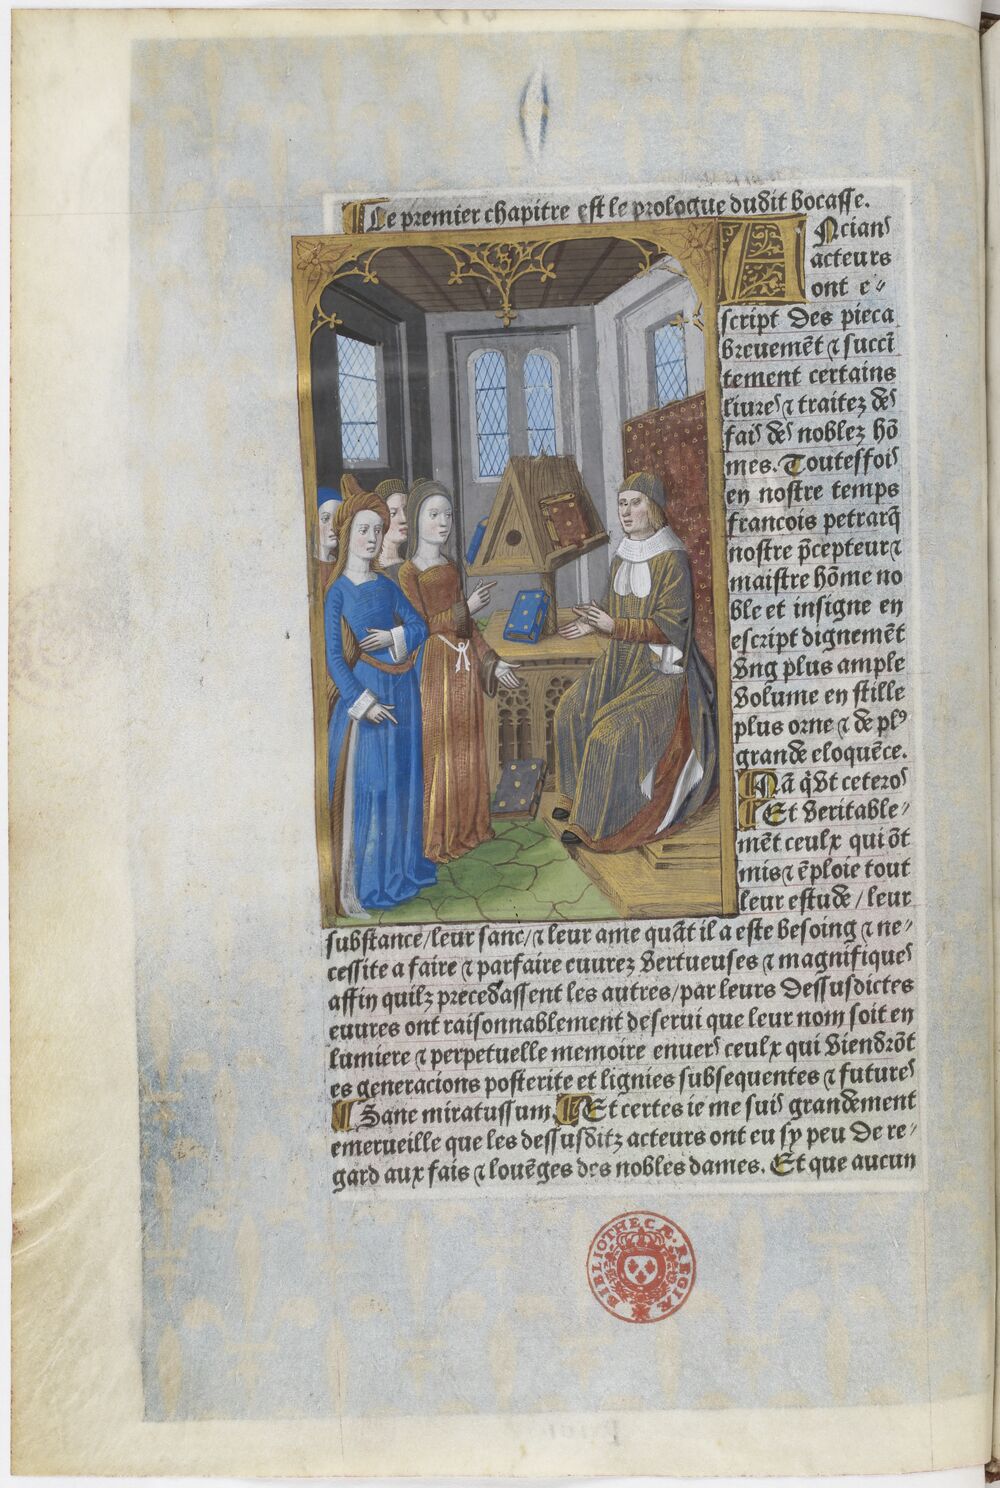 Le premier chapitre est le prologue dudit bocasse.
Ancians
acteurs
ont e⸗
script des pieca
breuemēt ⁊ succī
tement certains
liures ⁊ traitez des
fais des noblez hō
mes. Toutesfois
en nostre temps
francois petrarq̄
nostre p̄cepteur ⁊
maistre hōme no
ble et insigne en
escript dignemēt
vng plus ample
volume en stille
plus orne ⁊ de plꝰ
grande eloquēce.
Nā q̄ vt ceteros
Et veritable⸗
mēt ceulx qui ōt
mis ⁊ ēploie tout
leur estude / leur
substance / leur sanc / ⁊ leur ame quāt il a este besoing ⁊ ne⸗
cessite a faire ⁊ parfaire euurez vertueuses ⁊ magnifiques
affin quilz precedassent les autres / par leurs dessusdictes
euures ont raisonnablement deserui que leur nom soit en
lumiere ⁊ perpetuelle memoire enuers ceulx qui viendrōt
es generacions posterite et lignies subsequentes ⁊ futures
Sane miratus sum. Et certes ie me suis grandement
emerueille que les dessusditz acteurs ont eu sy peu de re⸗
gard aux fais ⁊ louēges des nobles dames. Et que aucun
BIBLIOTHECÆ REGIÆ